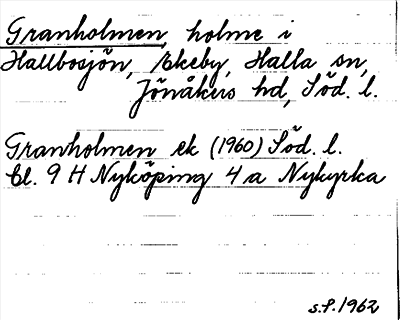 Granholmen, holme i
Hallbosjön, Ekeby, Halla sn,
Jönåkers hd, Söd. l.
Granholmen ek (1960) Söd. l.
bl. 9 H Nyköping 4 a Nykyrka
s.f. 1962